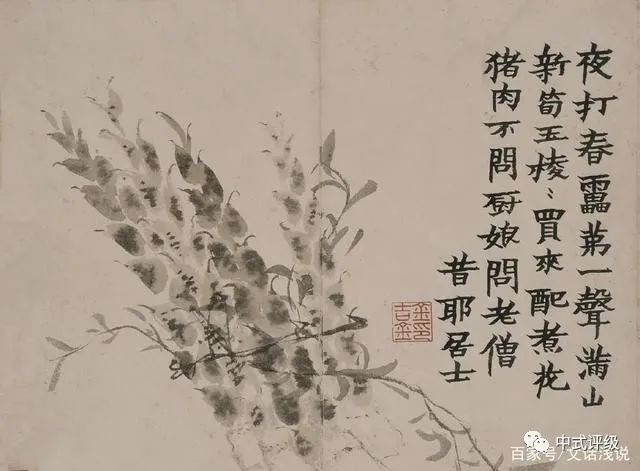 夜打春靁第一聲滿山
新筍玉棱〻買來配煮花
猪肉不問厨娘問老僧
昔耶居士
金吉金印
中式评级
百家号/文话浅说